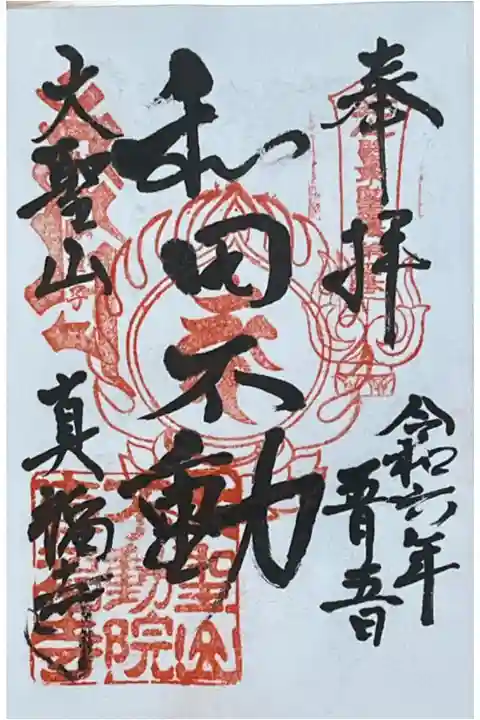 奉拝
令和六年
五月五日
和田不動
大聖山 真福寺
大聖山
不動院